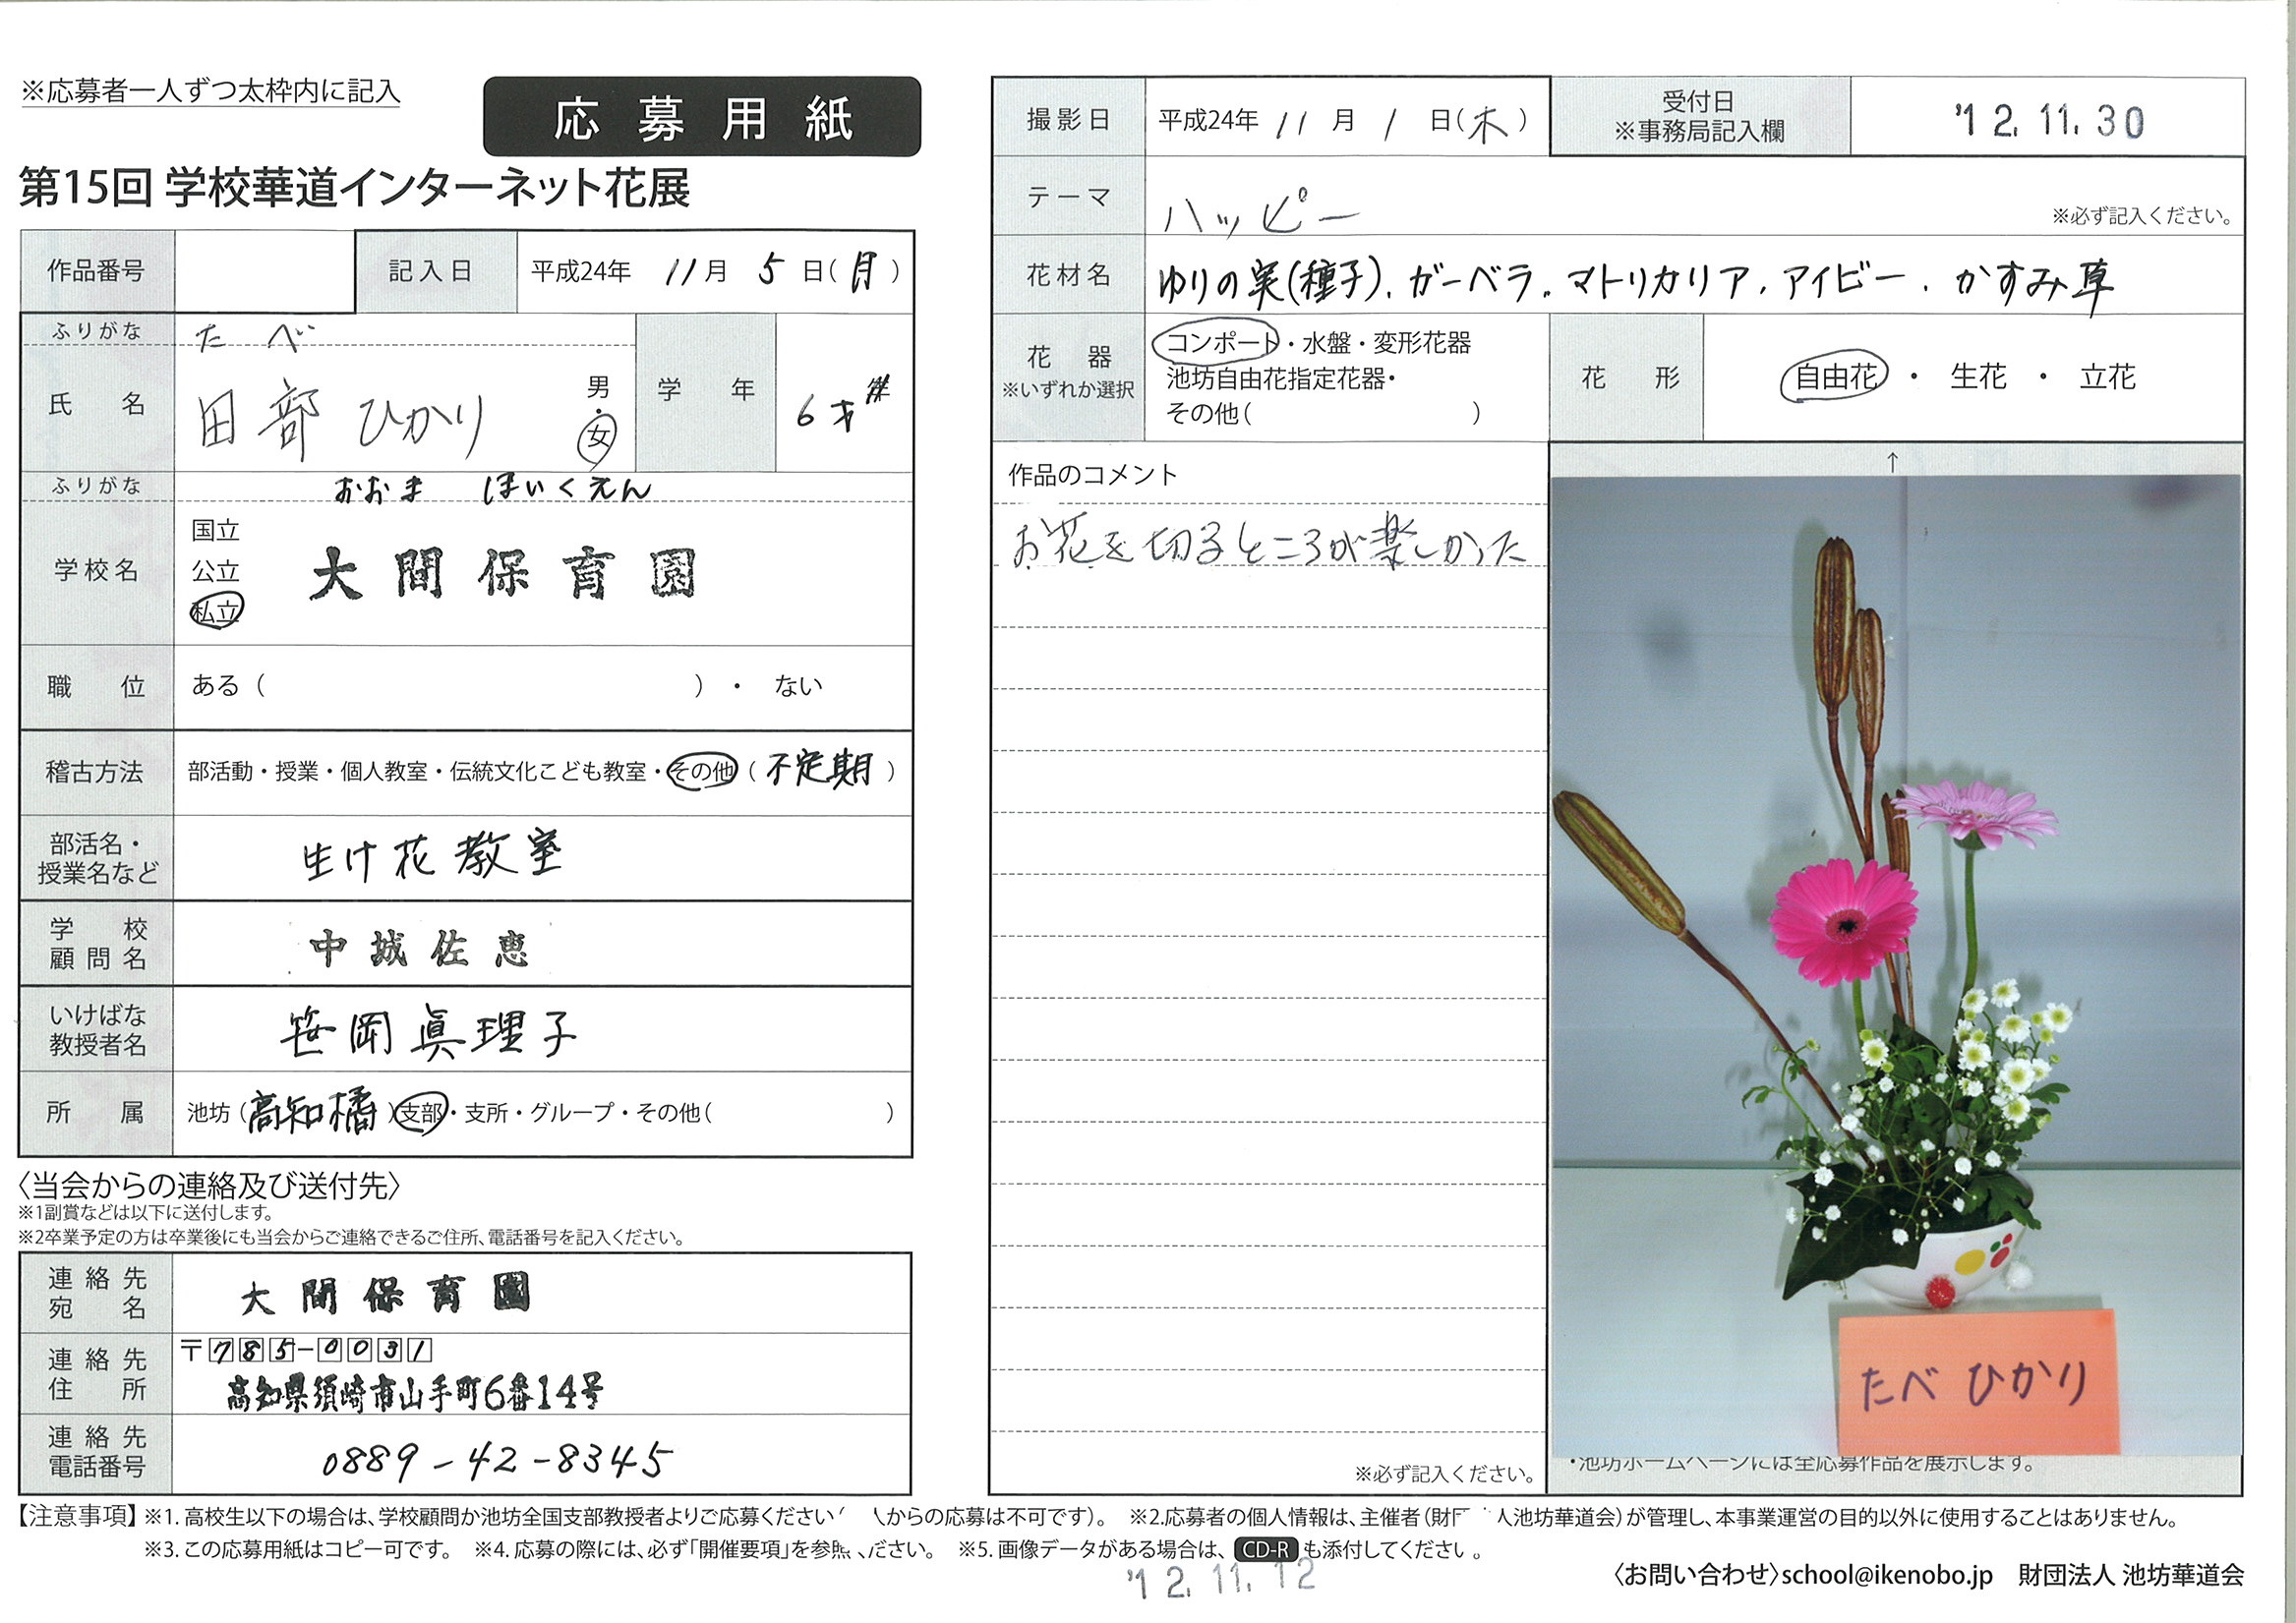 ※応募者一人ずつ太枠内に記入
応募用紙
第15回 学校華道インターネット花展
作品番号
記入日 平成24年 11月 5日(月)
ふりがな たべ
氏名 田部 ひかり 男・女
学年 6才
ふりがな おおま ほいくえん
学校名 国立 公立 私立 大間保育園
職位 ある( )・ない
稽古方法 部活動・授業・個人教室・伝統文化こども教室・その他(不定期)
部活名・授業名など 生け花教室
学校顧問名 中城佐恵
いけばな教授者名 笹岡眞理子
所属 池坊(高知橘)支部・支所・グループ・その他( )
〈当会からの連絡及び送付先〉
※1副賞などは以下に送付します。
※2卒業予定の方は卒業後にも当会からご連絡できるご住所、電話番号を記入ください。
連絡先宛名 大間保育園
連絡先住所 〒785-0031
高知県須崎市山手町6番14号
連絡先電話番号 0889-42-8345
撮影日 平成24年 11月 1日(木)
受付日 ※事務局記入欄 '12.11.30
テーマ ハッピー ※必ず記入ください。
花材名 ゆりの実(種子).ガーベラ.マトリカリア.アイビー.かすみ草
花器 ※いずれか選択 コンポート・水盤・変形花器
池坊自由花指定花器・
その他( )
花形 自由花・生花・立花
作品のコメント
お花を切るところが楽しかった
※必ず記入ください。
↑
たべ ひかり
・池坊ホームページには全応募作品を展示します。
【注意事項】※1. 高校生以下の場合は、学校顧問か池坊全国支部教授者よりご応募ください からの応募は不可です)。 ※2.応募者の個人情報は、主催者(財団 人池坊華道会)が管理し、本事業運営の目的以外に使用することはありません。
※3. この応募用紙はコピー可です。 ※4. 応募の際には、必ず「開催要項」を参照 ださい。 ※5. 画像データがある場合は、CD-Rも添付してください。
'12.11.12
〈お問い合わせ〉school@ikenobo.jp 財団法人 池坊華道会